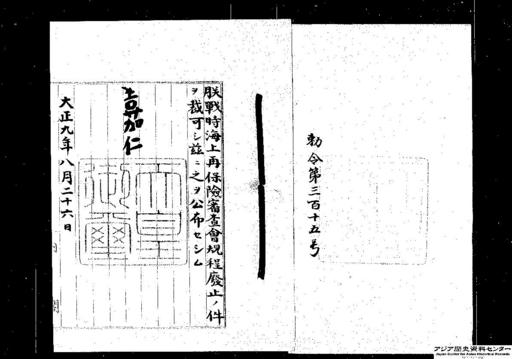 勅令第三百十五号
朕戦時海上再保険審査會規程廢止ノ件
ヲ裁可シ茲ニ之ヲ公布セシム
嘉仁
天皇
御璽
大正九年八月二十六日
アジア歴史資料センター
Japan Center for Asian Historical Records